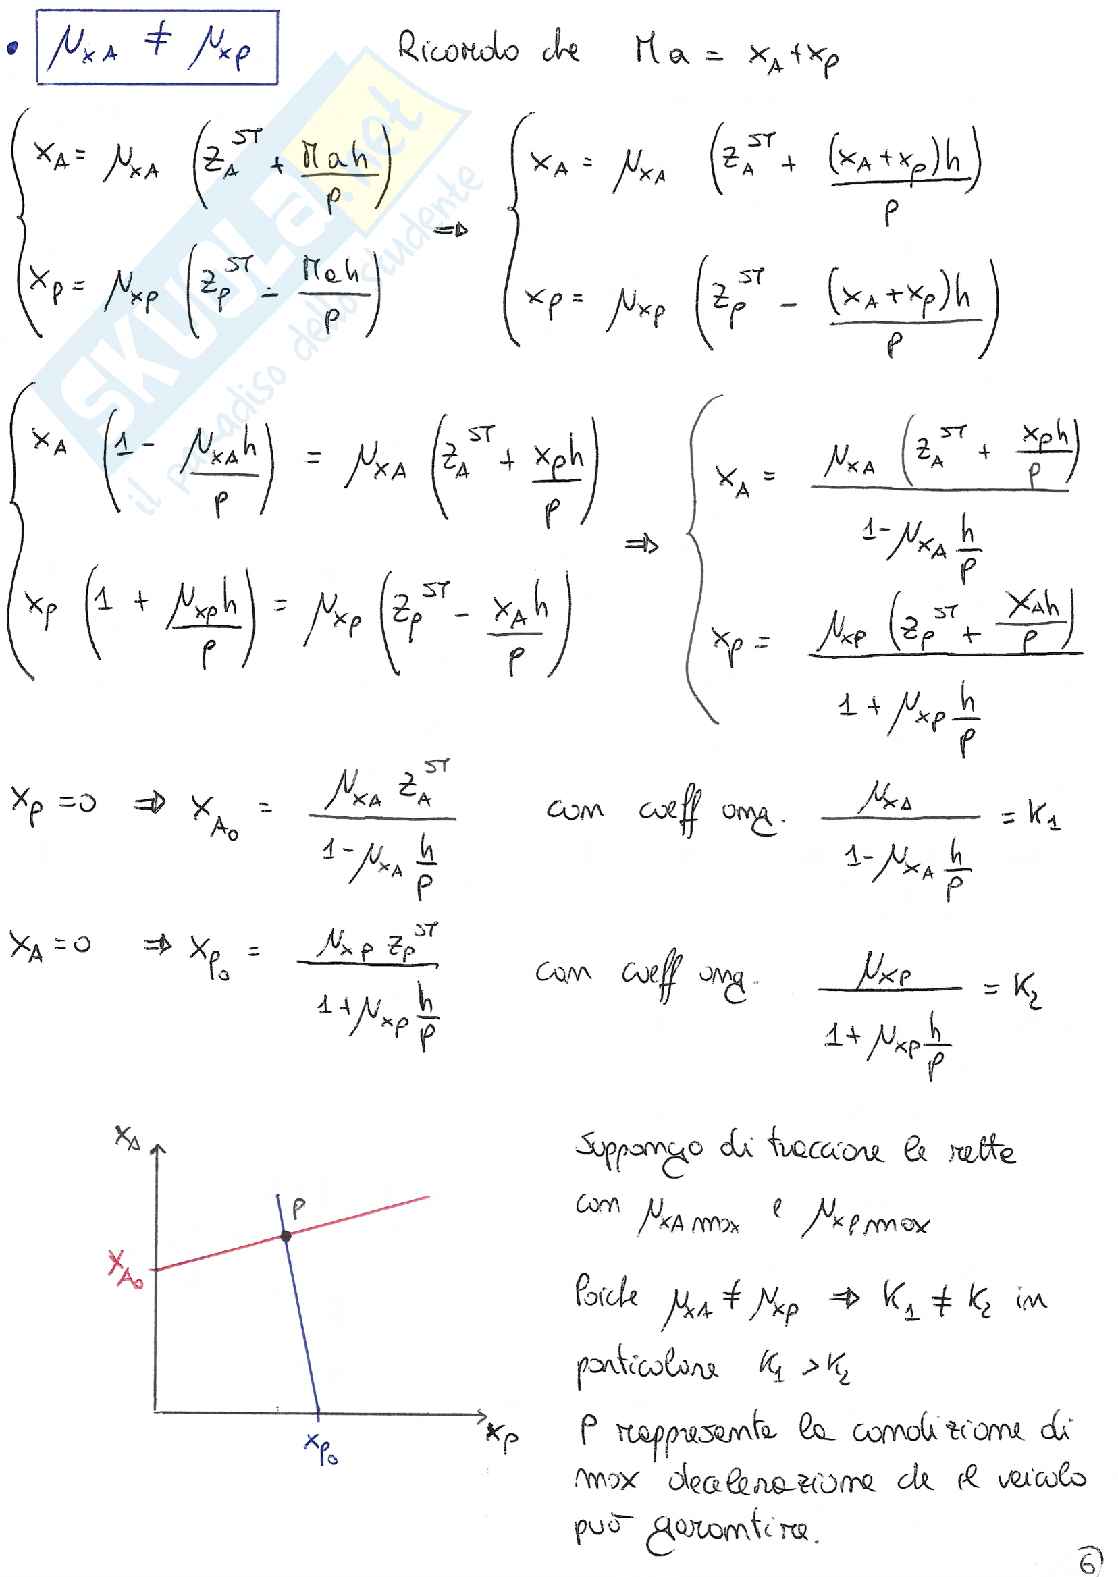 • μxA ≠ μxp Ricordo che Ma = xA + xp
xA = μxA (zA^ST + Mah/p) ⇒ xA = μxA (zA^ST + (xA+xp)h/p)
xp = μxp (zp^ST - Mah/p) xp = μxp (zp^ST - (xA+xp)h/p)
xA (1 - μxAh/p) = μxA (zA^ST + xph/p) ⇒ xA = μxA (zA^ST + xph/p) / (1 - μxA h/p)
xp (1 + μxph/p) = μxp (zp^ST - xAh/p) xp = μxp (zp^ST + xAh/p) / (1 + μxp h/p)
xp = 0 ⇒ xA0 = μxA zA^ST / (1 - μxA h/p) con coeff ang. μxA / (1 - μxA h/p) = K1
xA = 0 ⇒ xp0 = μxp zp^ST / (1 + μxp h/p) con coeff ang. μxp / (1 + μxp h/p) = K2
xA
P
xA0
xp0
xp
Suppongo di tracciare le rette
con μxA max e μxp max
Poiche μxA ≠ μxp ⇒ K1 ≠ K2 in
particolare K1 > K2
P rappresenta la condizione di
max decelerazione che il veicolo
può garantire.
6
SKUOLA.net
il paradiso dello studente